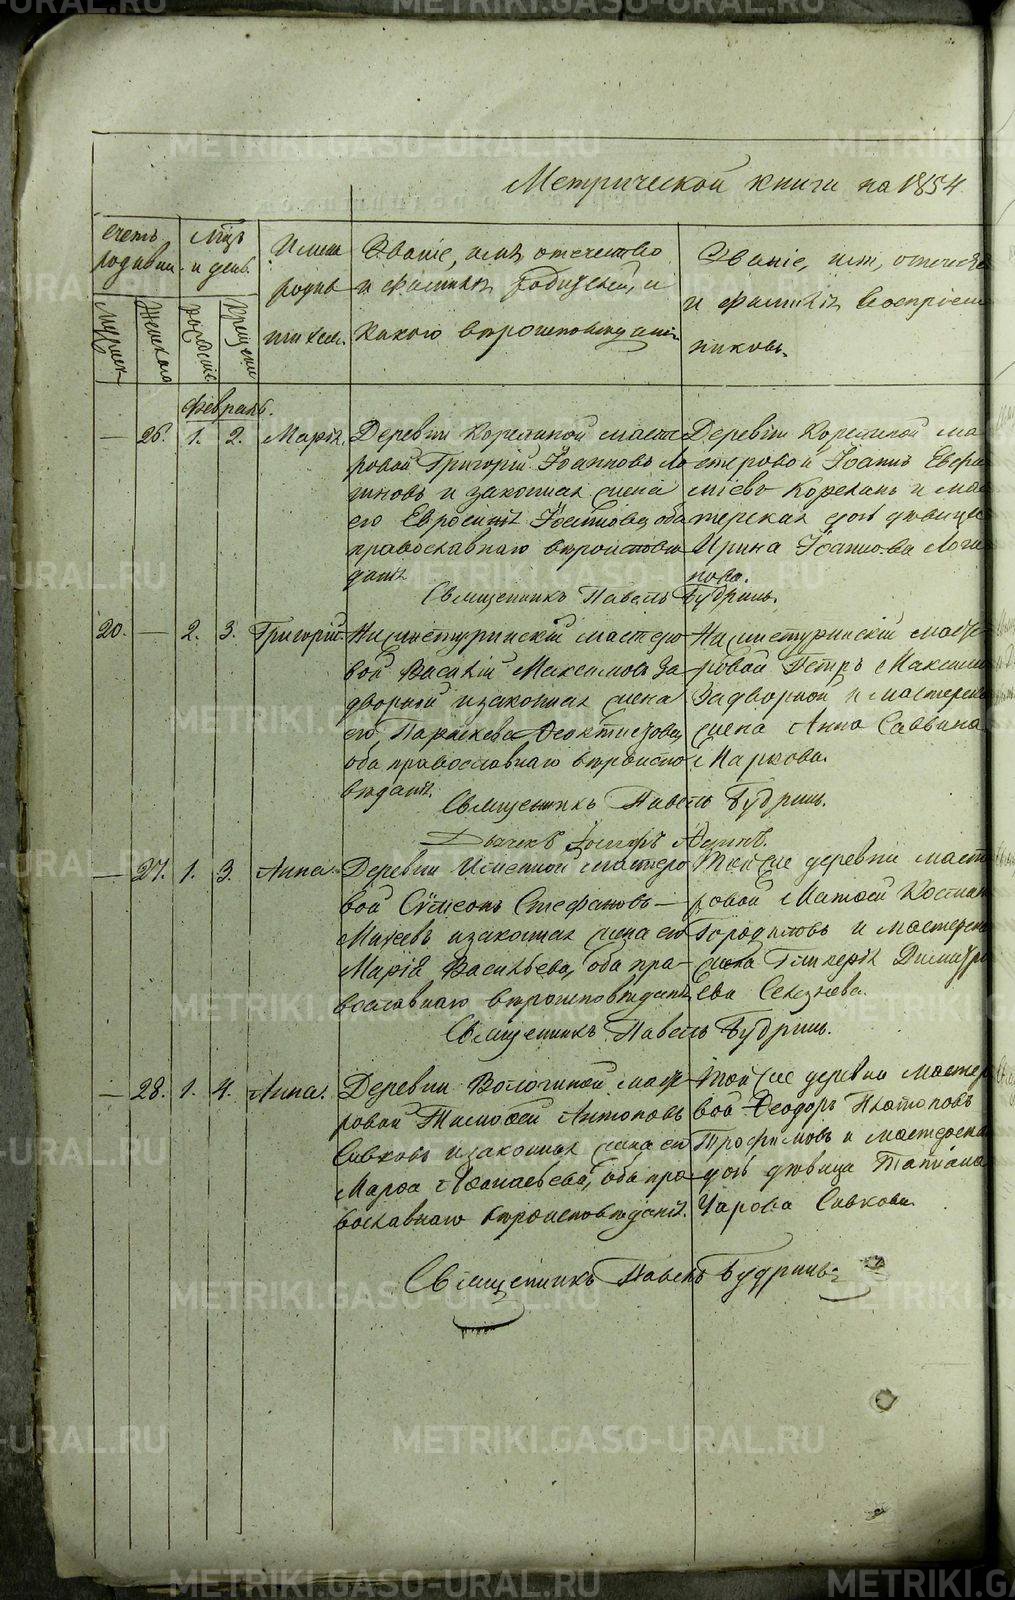 Метрической книги на 1854
Счетъ родивш.
Мѣц и день.
Имена родив
шихся.
Званіе, имя, отечество
и фамилія родителей, и
какого вѣроисповѣданія.
Званіе, имя, отечество
и фамилія воспріем
никовъ.
Мужеск
Женскаго
рожденія
крещенія
Февраль.
— 26. 1. 2. Марія.
Деревни Корелиной масте
ровой Григорій Іоанновъ Ло
гиновъ и законная жена
его Евросинія Іоаннова, оба
православнаго вѣроисповѣ
данія
Деревни Корелиной ма
стеровой Іоаннъ Евфи
міевъ Корелинъ и мас
терская дочь дѣвица
Ирина Іоаннова Логи
нова.
Священникъ Павелъ Будринъ.
20. — 2. 3. Григорій
Нижнетуринскій мастеро
вой Василій Максимовъ За
дворной и законная жена
его Параскева Феоктистова,
оба православнаго вѣроиспо
вѣданія.
Нижнетуринскій масте
ровой Петръ Максимо
Задворной и мастерска
жена Анна Саввина
Маркова.
Священникъ Павелъ Будринъ.
Дьячекъ
— 27. 1. 3. Анна.
Деревни Именной мастеро
вой Сѵмеонъ Стефановъ —
Михеевъ и законная жена его
Марія Васильева, оба пра-
вославнаго вѣроисповѣданія
Той же деревни масте
ровой Матѳей
Городиловъ и мастерска
жена Гликерія Димитрі
ева Селезнева.
Священникъ Павелъ Будринъ.
— 28. 1. 4. Анна.
Деревни Вологиной масте
ровой Тимоѳей Антоновъ
Сивковъ и законная жена его
Марѳа Аѳанасьева, оба пра
вославнаго вѣроисповѣданія.
Той же деревни мастеро
вой Ѳеодоръ Платоновъ
Трофимовъ и мастерска
дочь дѣвица Татіана
Сивкова.
Священникъ Павелъ Будринъ.